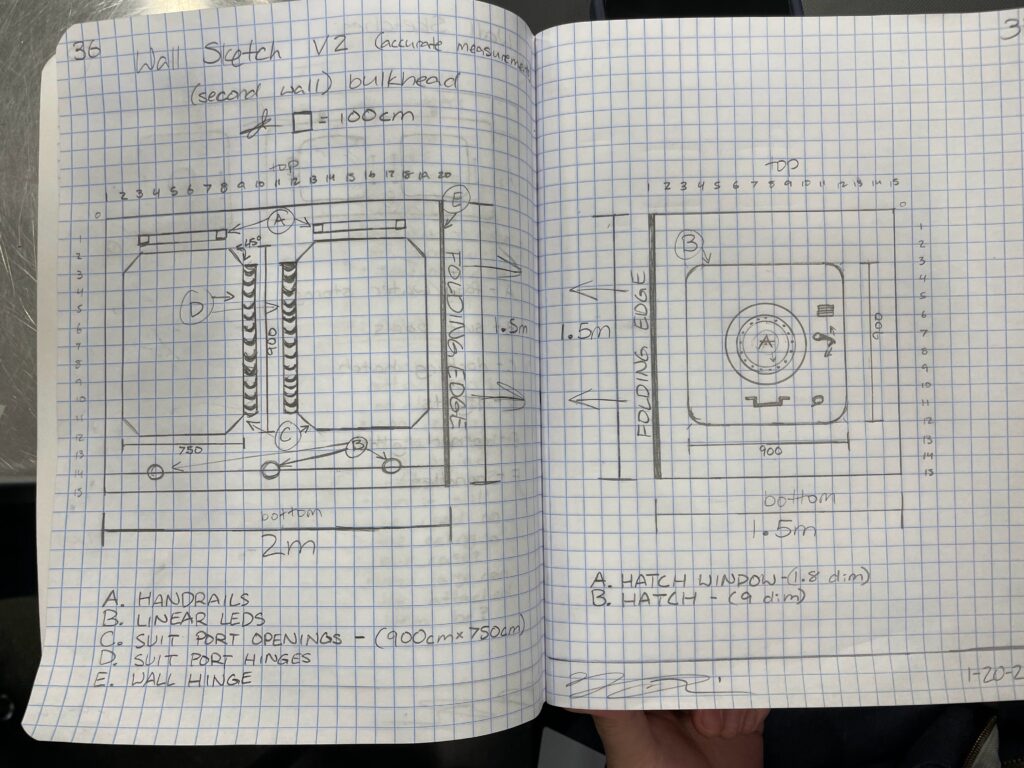 36
Wall Sketch V2 (accurate measurements
(second wall) bulkhead
□ = 100cm
top
1 2 3 4 5 6 7 8 9 10 11 12 13 14 15 16 17 18 19 20
0
1
2
3
4
5
6
7
8
9
10
11
12
13
14
15
A
E
45°
D
900
C
B
750
FOLDING EDGE
1.5m
bottom
2m
A. HANDRAILS
B. LINEAR LEDS
C. SUIT PORT OPENINGS - (900cm x 750cm)
D. SUIT PORT HINGES
E. WALL HINGE
3
top
1 2 3 4 5 6 7 8 9 10 11 12 13 14 15
0
1
2
3
4
5
6
7
8
9
10
11
12
13
14
15
B
A
900
900
1.5m
FOLDING EDGE
bottom
1.5m
A. HATCH WINDOW - (1.8 dim)
B. HATCH - (9 dim)
1-20-2